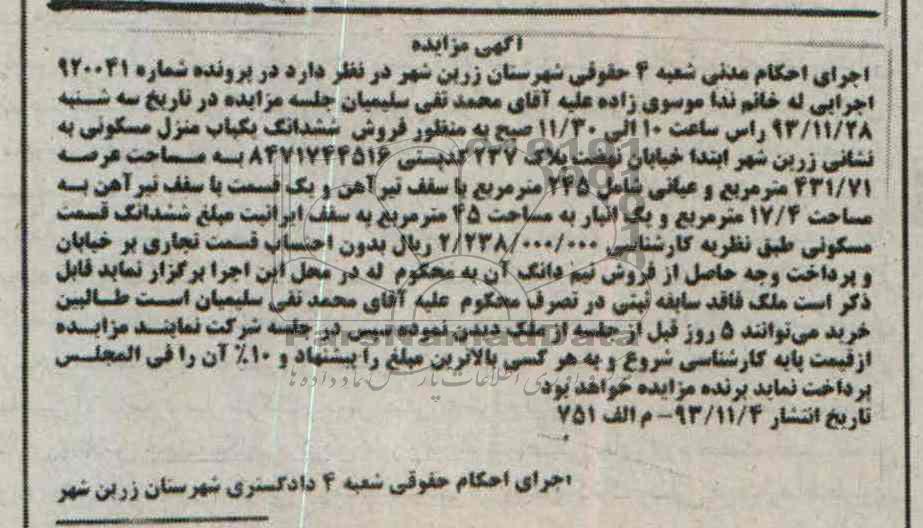 آگهی مزایده
اجرای احکام مدنی شعبه ۴ حقوقی شهرستان زرین شهر در نظر دارد در پرونده شماره ۹۲۰۰۴۱
اجرایی له خانم ندا موسوی زاده علیه آقای محمد تقی سلیمیان جلسه مزایده در تاریخ سه شنبه
۹۳/۱۱/۲۸ راس ساعت ۱۰ الی ۱۱/۳۰ صبح به منظور فروش ششدانگ یکباب منزل مسکونی به
نشانی زرین شهر ابتدا خیابان نهضت پلاک ۲۳۷ کدپستی ۸۴۷۱۷۴۴۵۱۶ به مساحت عرصه
۴۳۱/۷۱ مترمربع و عیانی شامل ۲۴۵ مترمربع با سقف تیرآهن و یک قسمت با سقف تیر آهن به
مساحت ۱۷/۴ مترمربع و یک انبار به مساحت ۴۵ مترمربع به سقف ایرانیت مبلغ ششدانگ قسمت
مسکونی طبق نظریه کارشناسی ۲/۲۳۸/۰۰۰/۰۰۰ ریال بدون احتساب قسمت تجاری بر خیابان
و پرداخت وجه حاصل از فروش نیم دانگ آن به محکوم له در محل این اجرا برگزار نماید قابل
ذکر است ملک فاقد سابقه ثبتی در تصرف محکوم علیه آقای محمد تقی سلیمیان است طالبین
خرید می‌توانند ۵ روز قبل از جلسه از ملک دیدن نموده سپس در جلسه شرکت نمایند مزایده
ازقیمت پایه کارشناسی شروع و به هر کسی بالاترین مبلغ را پیشنهاد و ۱۰٪ آن را فی المجلس
پرداخت نماید برنده مزایده خواهد بود
تاریخ انتشار ۹۳/۱۱/۴- م الف ۷۵۱
اجرای احکام حقوقی شعبه ۴ دادگستری شهرستان زرین شهر